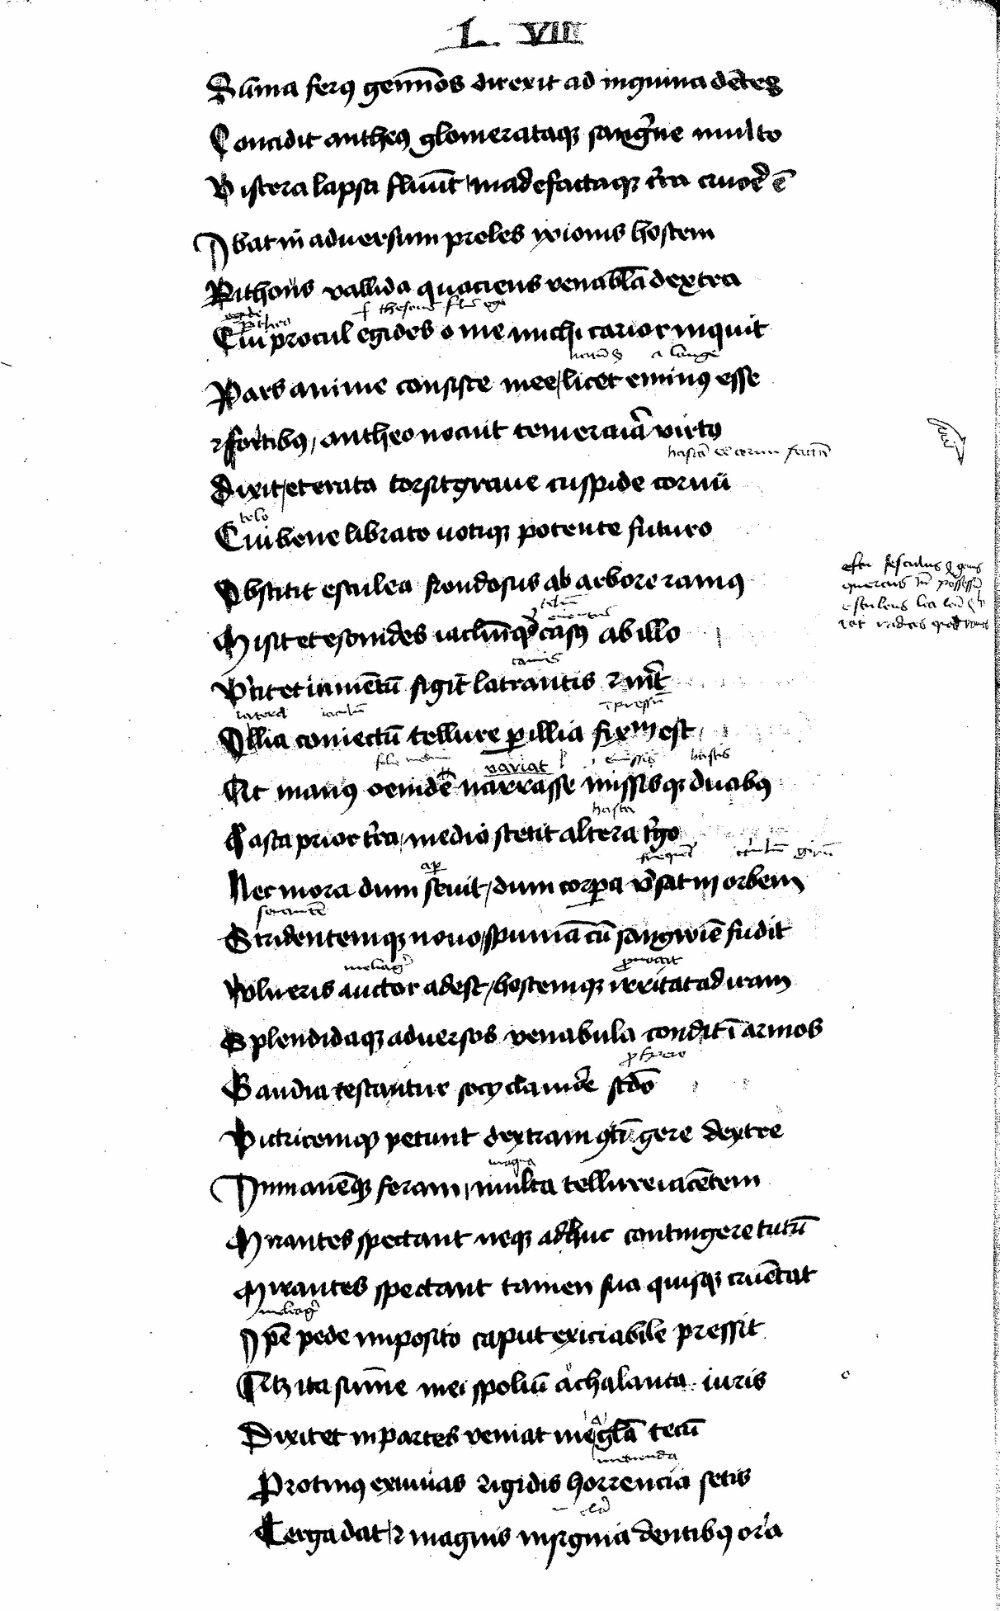 L VIII
Sūma ferꝰ gemīos direxit ad inguina dētes
Concidit antheꝰ glomerataqꝫ sangͥne multo
Viscera lapsa fluūt madefactaqꝫ tͬra cruore ē
Ibat in adversum proles yxionis hostem
Pithous vallida quaciens venabl̄a dextra
Cui procul egides o me michi carior inquit
Pars anime consiste mee licet eminꝰ esse
fortibꝰ antheo nocuit temeraria virtꝰ
Dixit et erata torsit grave cuspide cornū
telo
Cui bene librato votiqꝫ potente futuro
Obstitit esculea frondosus ab arbore ramꝰ
Misit et esonides iaculūqꝫ casꝰ ab illo
Vertit et inmeritū sigīt latrantis ⁊ intͬ
Illia coniectū tellure ꝑ illia fixū est
At manꝰ oenidē variat missisqꝫ duabꝰ
hasta
Hasta prior tͬra medio stetit altera tͬgo
aper
Nec mora dum sevit dum corpora vͬsat in orbem
Stridentemqꝫ novo spumā cū sangwīe fudit
Vulneris auctor adest hostemqꝫ irritat ad iram
Splendidaqꝫ adversos venabula condit ī armos
Gaudia testantur socy clamore scdo
Victricemqꝫ petunt dextram ꝯtīgere dextre
magna
Inmanēqꝫ feram multa tellure iacētem
Mirantes spectant neqꝫ adhuc contingere tutū
Mirantes spectant tamen sua quisqꝫ cruētat
Ipē pede imposito caput exiciabile pressit
Atqꝫ ita sūme mei spoliū achalanta iuris
Dixit et in partes veniat mea gl̄a tecū
metuenda
Protinꝰ exuvias rigidis horrencia setis
Terga dat ⁊ magnis insignia dentibꝰ ora